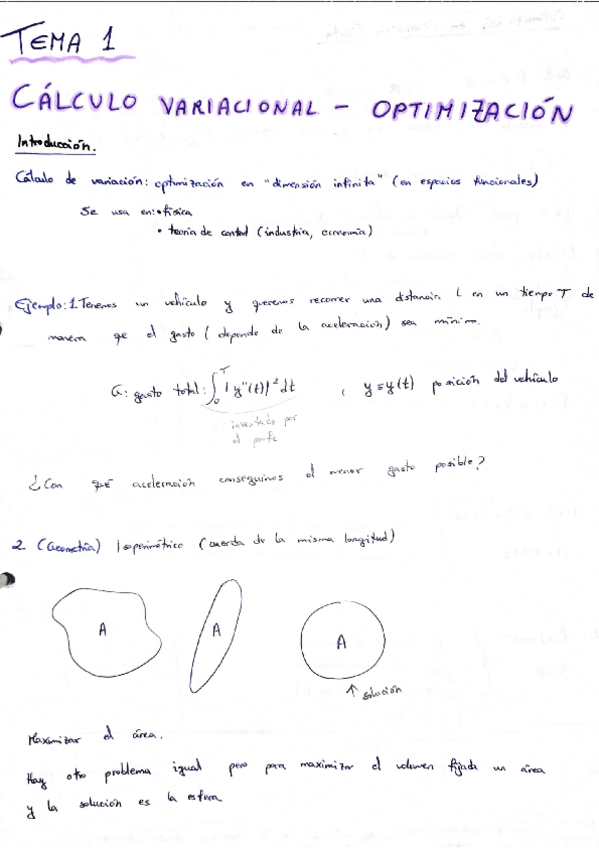 TEMA 1
CÁLCULO VARIACIONAL - OPTIMIZACIÓN
Introducción.
Cálculo de variación: optimización en "dimensión infinita" (en espacios funcionales)
Se usa en: • física
• teoría de control (industria, economía)
Ejemplo: 1. Tenemos un vehículo y queremos recorrer una distancia L en un tiempo T de
manera que el gasto (depende de la aceleración) sea mínimo.
G: gasto total: ∫₀ᵀ |y''(t)|² dt , y ≡ y(t) posición del vehículo
inventado por
el profe
¿Con qué aceleración conseguimos el menor gasto posible?
2. (Geometría) Isoperimétrico (cuerda de la misma longitud)
A A A
↑ solución
Maximizar el área.
Hay otro problema igual pero para maximizar el volumen fijada un área
y la solución es la esfera